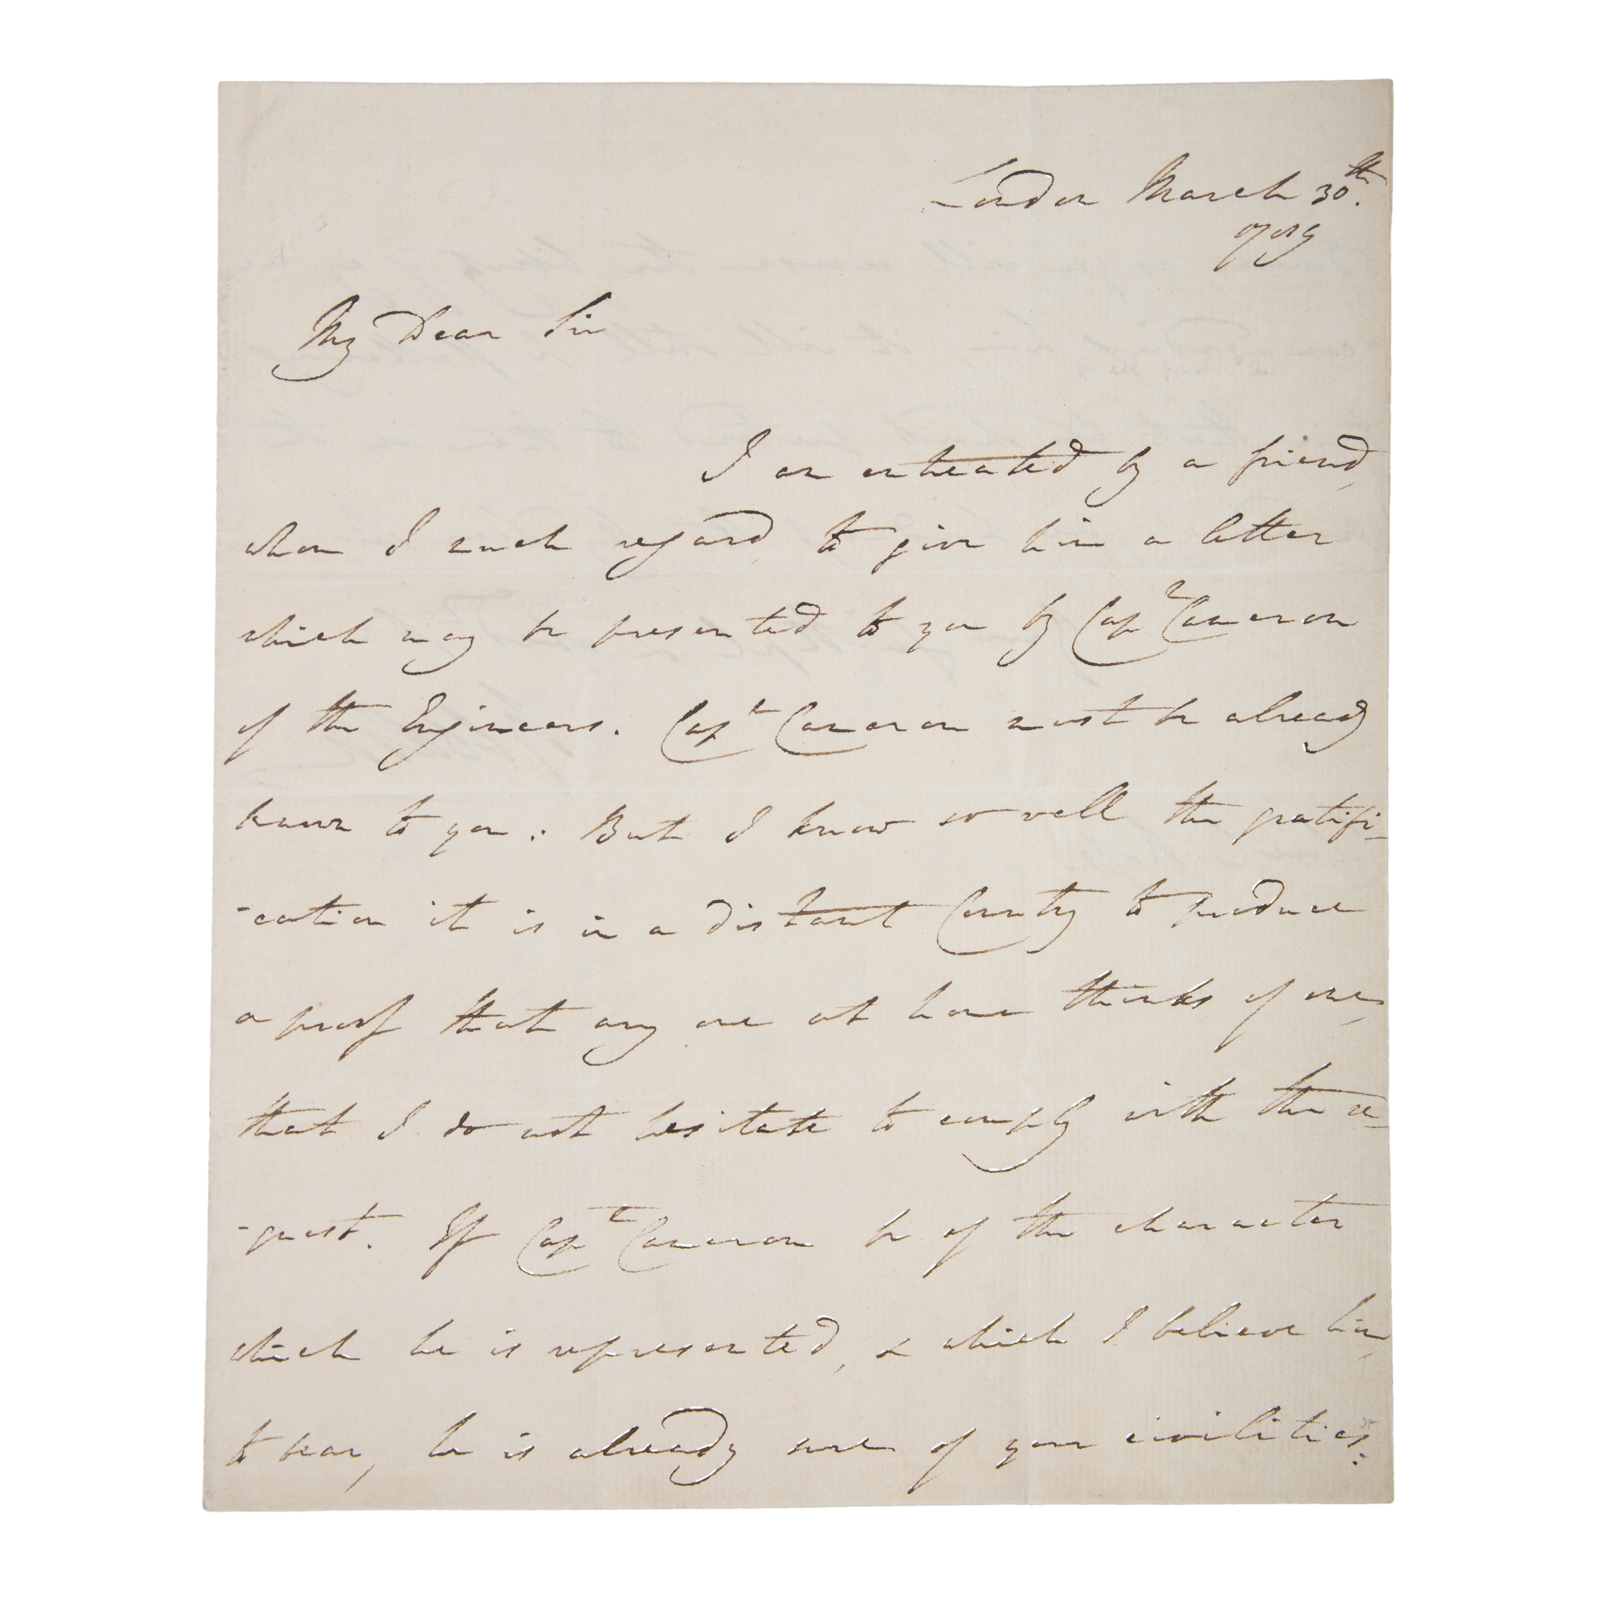 London March 30th.
1789
My Dear Sir
I am entreated by a friend,
whom I much regard, to give him a letter
which may be presented to you by Capt Cameron
of the Engineers. Capt Cameron must be already
known to you: But I know so well the gratifi-
-cation it is in a distant Country to produce
a proof that any one at home thinks of one,
that I do not hesitate to comply with the re-
-quest. If Capt Cameron be of the character
which he is represented, & which I believe him,
to bear, he is already sure of your civilities: